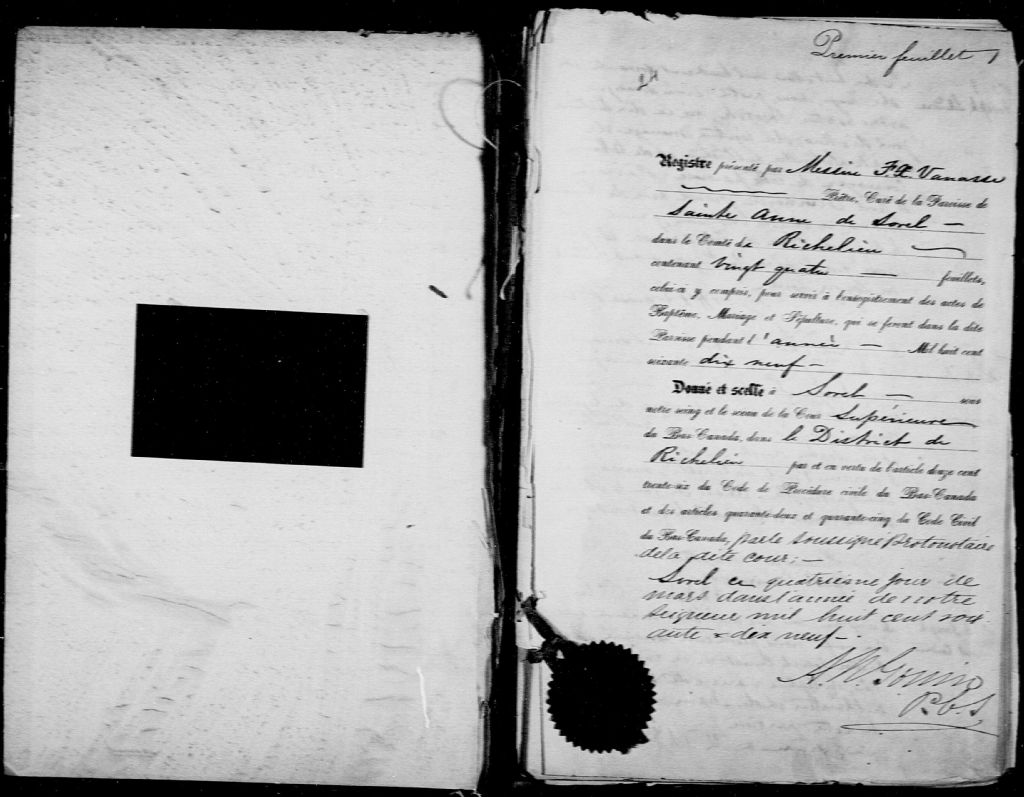 Premier feuillet 1
24
Registre présenté par Messire F.X. Vanasse
Prêtre, Curé de la Paroisse de
Sainte Anne de Sorel —
dans le Comté de Richelieu
contenant Vingt quatre — feuillets,
celui-ci y compris, pour servir à l'enregistrement des actes de
Baptême, Mariage et Sépulture, qui se feront dans la dite
Paroisse pendant l'année — Mil huit cent
soixante dix neuf —
Donné et scellé à Sorel — sous
notre seing et le sceau de la Cour Supérieure
du Bas-Canada, dans le District de
Richelieu par et en vertu de l'article douze cent
trente-six du Code de Procédure civile du Bas-Canada
et des articles quarante-deux et quarante-cinq du Code Civil
du Bas-Canada, par le soussigné Protonotaire
de la dite cour; —
Sorel ce quatrième jour de
mars dans l'année de notre
Seigneur mil huit cent soix
ante & dix neuf —
A.N. Gouin
P.C.S